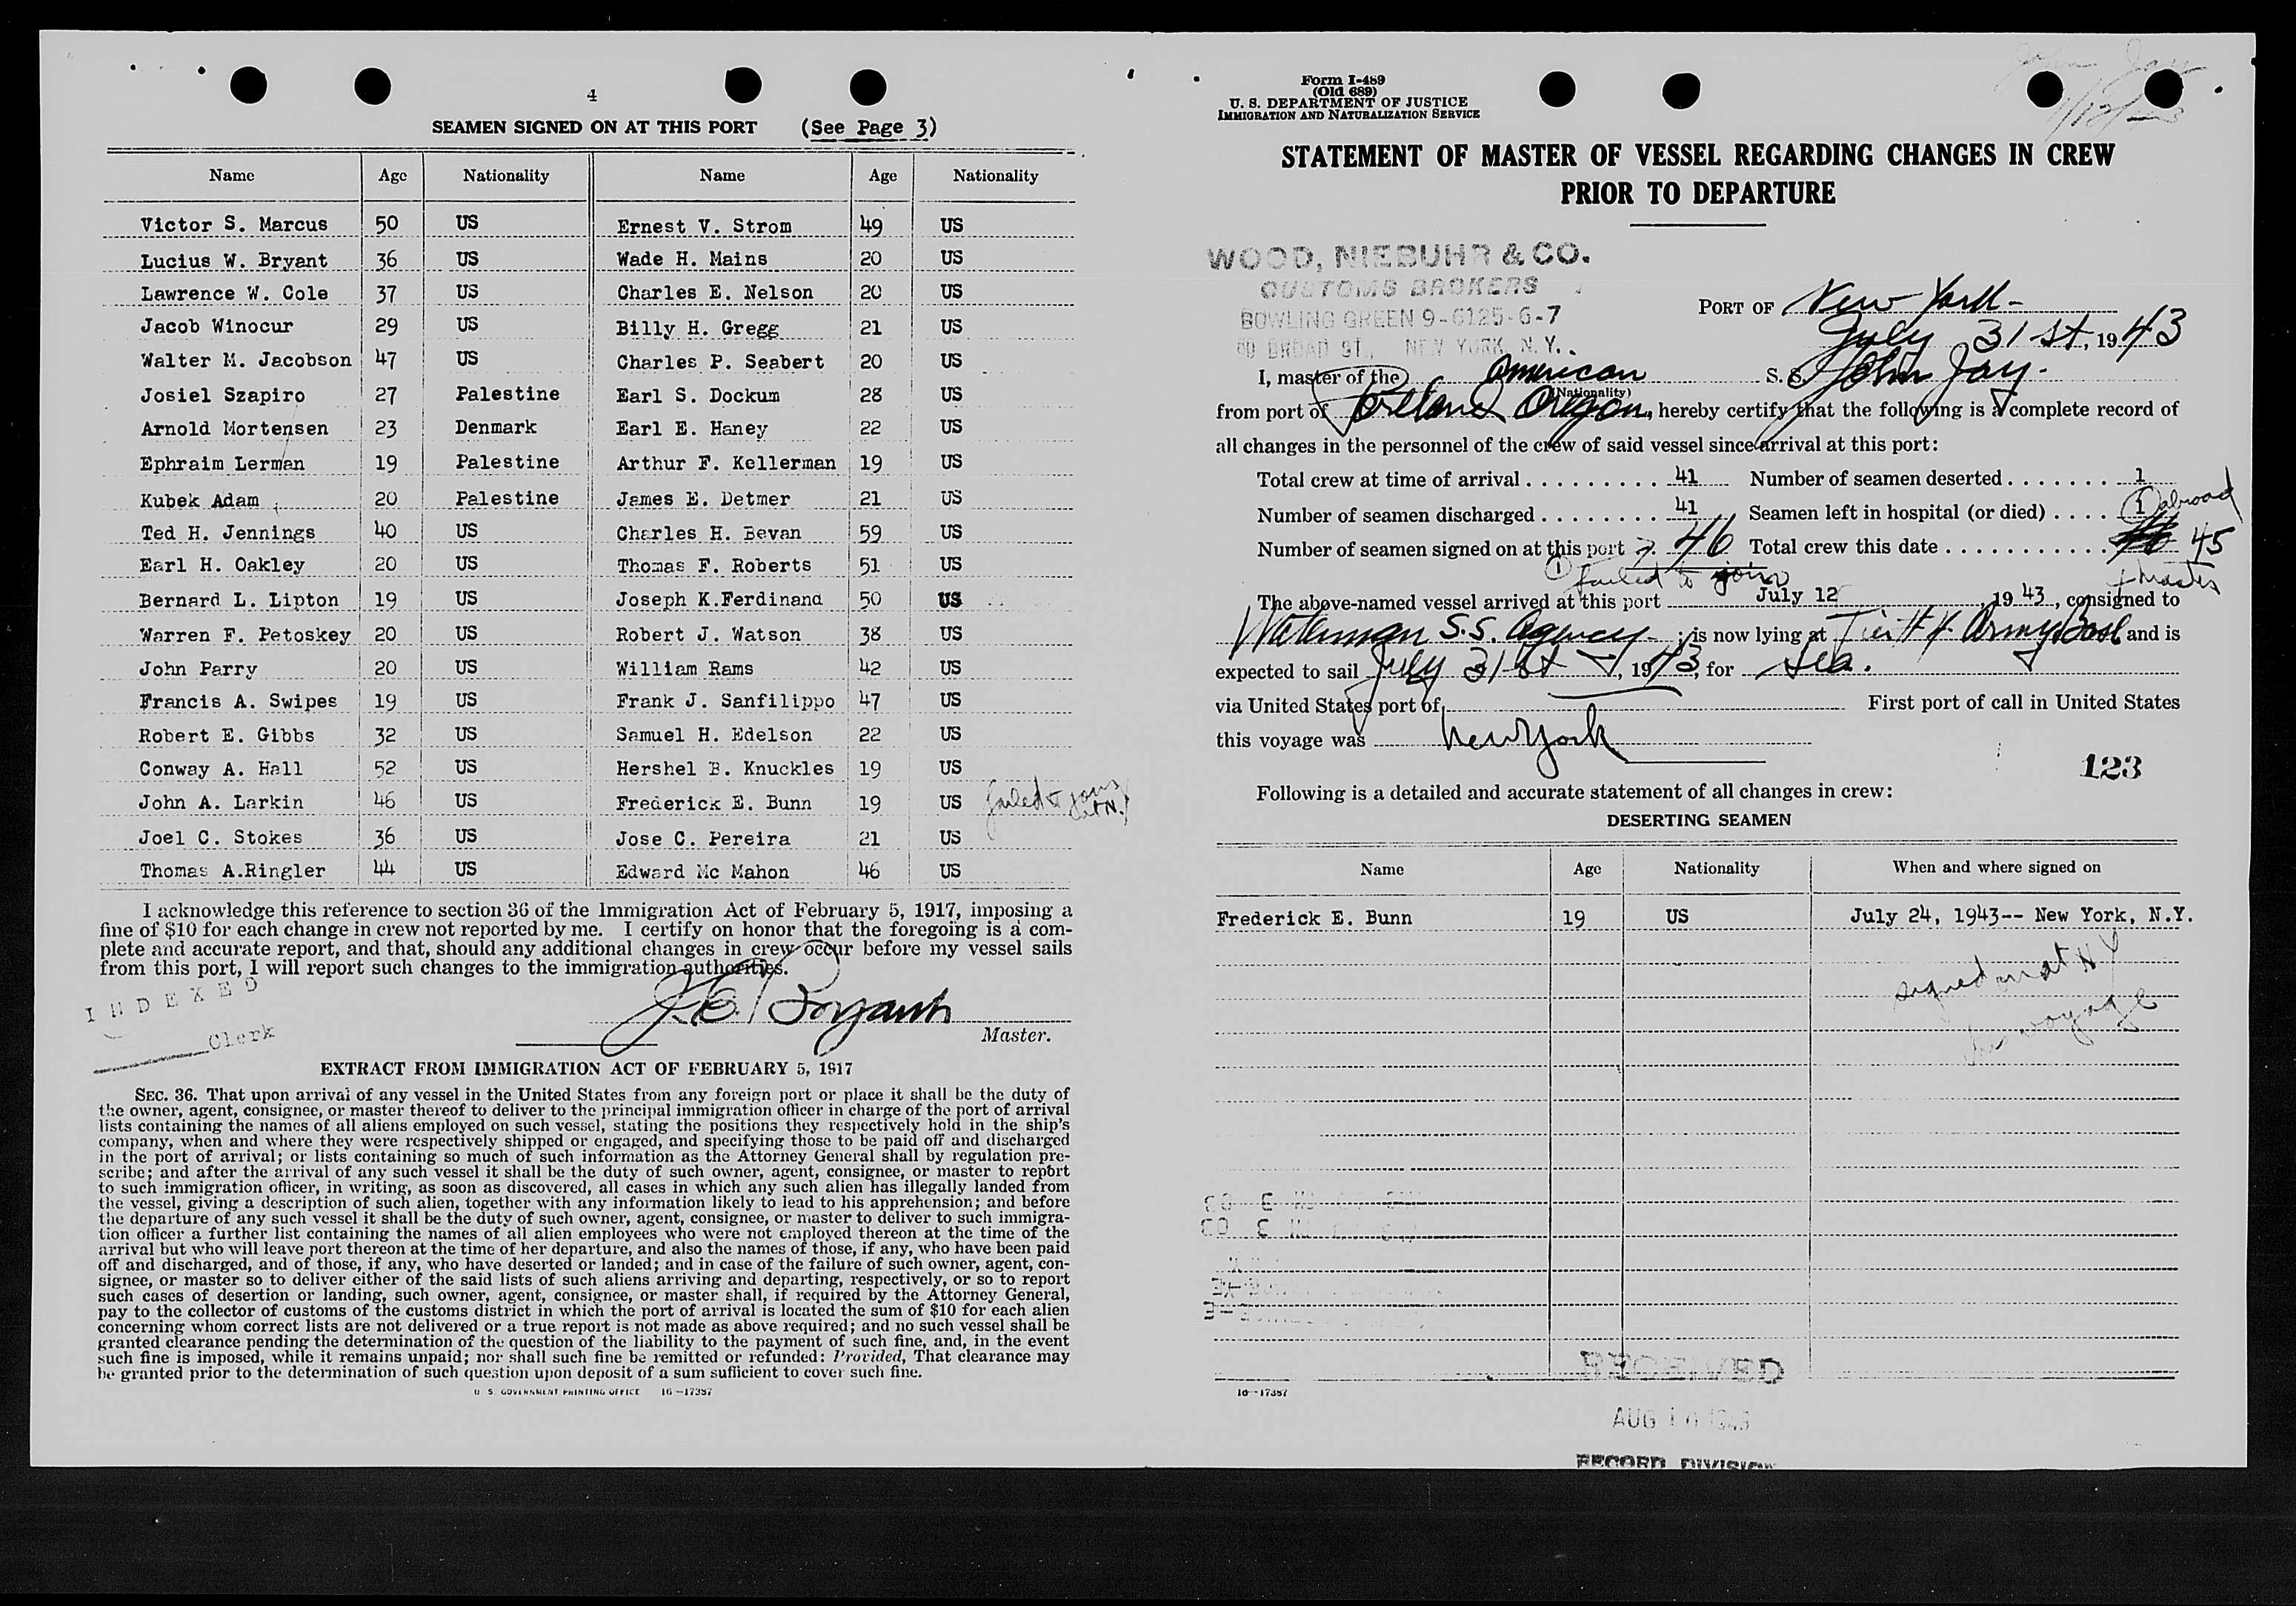 4
SEAMEN SIGNED ON AT THIS PORT (See Page 3)
Name Age Nationality Name Age Nationality
Victor S. Marcus 50 US Ernest V. Strom 49 US
Lucius W. Bryant 36 US Wade H. Mains 20 US
Lawrence W. Cole 37 US Charles E. Nelson 20 US
Jacob Winocur 29 US Billy H. Gregg 21 US
Walter M. Jacobson 47 US Charles P. Seabert 20 US
Josiel Szapiro 27 Palestine Earl S. Dockum 28 US
Arnold Mortensen 23 Denmark Earl E. Haney 22 US
Ephraim Lerman 19 Palestine Arthur F. Kellerman 19 US
Kubek Adam 20 Palestine James E. Detmer 21 US
Ted H. Jennings 40 US Charles H. Bevan 59 US
Earl H. Oakley 20 US Thomas F. Roberts 51 US
Bernard L. Lipton 19 US Joseph K.Ferdinand 50 US
Warren F. Petoskey 20 US Robert J. Watson 38 US
John Parry 20 US William Rams 42 US
Francis A. Swipes 19 US Frank J. Sanfilippo 47 US
Robert E. Gibbs 32 US Samuel H. Edelson 22 US
Conway A. Hall 52 US Hershel B. Knuckles 19 US
John A. Larkin 46 US Frederick E. Bunn 19 US failed to join
Joel C. Stokes 36 US Jose C. Pereira 21 US
Thomas A.Ringler 44 US Edward Mc Mahon 46 US
I acknowledge this reference to section 36 of the Immigration Act of February 5, 1917, imposing a
fine of $10 for each change in crew not reported by me. I certify on honor that the foregoing is a com-
plete and accurate report, and that, should any additional changes in crew occur before my vessel sails
from this port, I will report such changes to the immigration authorities.
INDEXED
Clerk
Master.
EXTRACT FROM IMMIGRATION ACT OF FEBRUARY 5, 1917
SEC. 36. That upon arrival of any vessel in the United States from any foreign port or place it shall be the duty of
the owner, agent, consignee, or master thereof to deliver to the principal immigration officer in charge of the port of arrival
lists containing the names of all aliens employed on such vessel, stating the positions they respectively hold in the ship's
company, when and where they were respectively shipped or engaged, and specifying those to be paid off and discharged
in the port of arrival; or lists containing so much of such information as the Attorney General shall by regulation pre-
scribe; and after the arrival of any such vessel it shall be the duty of such owner, agent, consignee, or master to report
to such immigration officer, in writing, as soon as discovered, all cases in which any such alien has illegally landed from
the vessel, giving a description of such alien, together with any information likely to lead to his apprehension; and before
the departure of any such vessel it shall be the duty of such owner, agent, consignee, or master to deliver to such immigra-
tion officer a further list containing the names of all alien employees who were not employed thereon at the time of the
arrival but who will leave port thereon at the time of her departure, and also the names of those, if any, who have been paid
off and discharged, and of those, if any, who have deserted or landed; and in case of the failure of such owner, agent, con-
signee, or master so to deliver either of the said lists of such aliens arriving and departing, respectively, or so to report
such cases of desertion or landing, such owner, agent, consignee, or master shall, if required by the Attorney General,
pay to the collector of customs of the customs district in which the port of arrival is located the sum of $10 for each alien
concerning whom correct lists are not delivered or a true report is not made as above required; and no such vessel shall be
granted clearance pending the determination of the question of the liability to the payment of such fine, and, in the event
such fine is imposed, while it remains unpaid; nor shall such fine be remitted or refunded: Provided, That clearance may
be granted prior to the determination of such question upon deposit of a sum sufficient to cover such fine.
U S GOVERNMENT PRINTING OFFICE 16—17387
Form I-489
(Old 689)
U. S. DEPARTMENT OF JUSTICE
IMMIGRATION AND NATURALIZATION SERVICE
John Jay
STATEMENT OF MASTER OF VESSEL REGARDING CHANGES IN CREW
PRIOR TO DEPARTURE
WOOD, NIEBUHR & CO.
CUSTOMS BROKERS
BOWLING GREEN 9-6125-6-7
80 BROAD ST., NEW YORK, N.Y.
PORT OF New York
July 31st, 1943
I, master of the American S. S. John Jay
(Nationality)
from port of Portland Oregon, hereby certify that the following is a complete record of
all changes in the personnel of the crew of said vessel since arrival at this port:
Total crew at time of arrival 41 Number of seamen deserted 1
Number of seamen discharged 41 Seamen left in hospital (or died) 1 abroad
Number of seamen signed on at this port 46 Total crew this date 45
1 failed to join + master
The above-named vessel arrived at this port July 12 1943, consigned to
Waterman S.S. Agency; is now lying at Army Base and is
expected to sail July 31st, 1943, for Sea.
via United States port of First port of call in United States
this voyage was New York
123
Following is a detailed and accurate statement of all changes in crew:
DESERTING SEAMEN
Name Age Nationality When and where signed on
Frederick E. Bunn 19 US July 24, 1943-- New York, N.Y.
signed on at NY
voyage
16—17387
RECEIVED
AUG
RECORD DIVISION